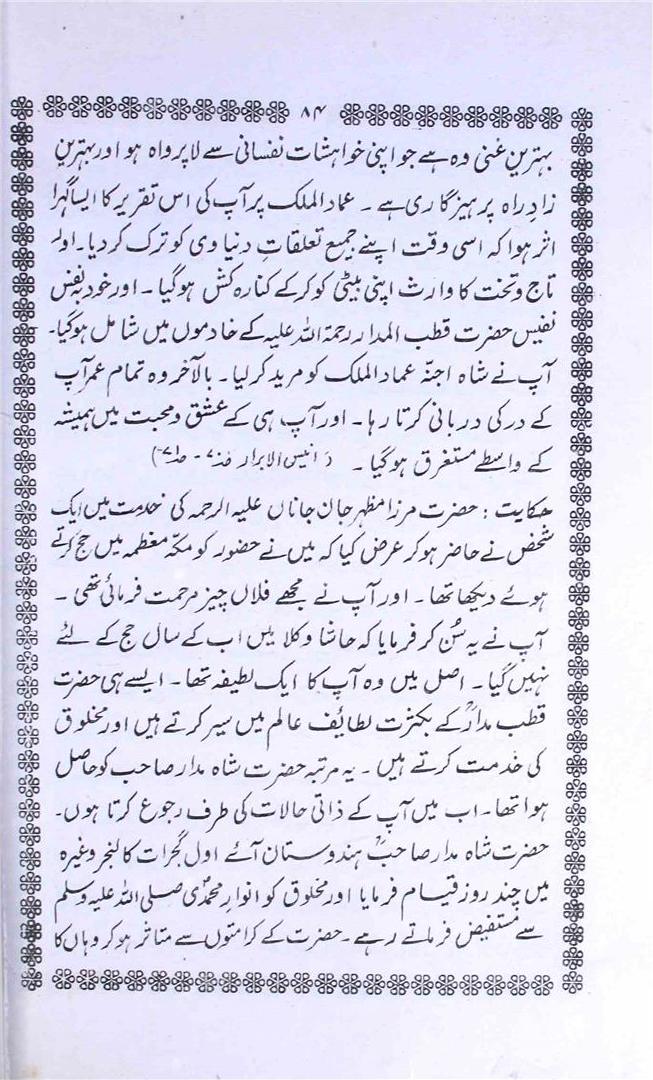 ۸۴
بہترین غنی وہ ہے جو اپنی خواہشات نفسانی سے لاپرواہ ہو اور بہترین
زادِ راہ پرہیزگاری ہے ۔ عماد الملک پر آپ کی اس تقریر کا ایسا گہرا
اثر ہوا کہ اسی وقت اپنے جمیع تعلقاتِ دنیاوی کو ترک کر دیا ۔ اور
تاج و تخت کا وارث اپنی بیٹی کو کرکے کنارہ کش ہوگیا ۔ اور خود بہ نفس
نفیس حضرت قطب المدار رحمۃ اللہ علیہ کے خادموں میں شامل ہوگیا ۔
آپ نے شاہ اجنّہ عماد الملک کو مرید کر لیا ۔ بالآخر وہ تمام عمر آپ
کے در کی دربانی کرتا رہا ۔ اور آپ ہی کے عشق و محبت میں ہمیشہ
کے واسطے مستغرق ہوگیا ۔ ( انیس الابرار صـ۷۰ - صـ۷۱)
حکایت : حضرت مرزا مظہر جان جاناں علیہ الرحمہ کی خدمت میں ایک
شخص نے حاضر ہو کر عرض کیا کہ میں نے حضور کو مکہّ معظمہ میں حج کرتے
ہوئے دیکھا تھا ۔ اور آپ نے مجھے فلاں چیز مرحمت فرمائی تھی ۔
آپ نے یہ سُن کر فرمایا کہ حاشا وکلا میں اب کے سال حج کے لئے
نہیں گیا ۔ اصل میں وہ آپ کا ایک لطیفہ تھا ۔ ایسے ہی حضرت
قطب مدارؒ کے بکثرت لطائف عالم میں سیر کرتے ہیں اور مخلوق
کی خدمت کرتے ہیں ۔ یہ مرتبہ حضرت شاہ مدار صاحب کو حاصل
ہوا تھا ۔ اب میں آپ کے ذاتی حالات کی طرف رجوع کرتا ہوں ۔
حضرت شاہ مدار صاحبؒ ہندوستان آئے اول گجرات کالنجر وغیرہ
میں چند روز قیام فرمایا اور مخلوق کو انوارِ محمدی صلی اللہ علیہ وسلم
سے مستفیض فرماتے رہے ۔ حضرت کے کرامتوں سے متاثر ہو کر وہاں کا